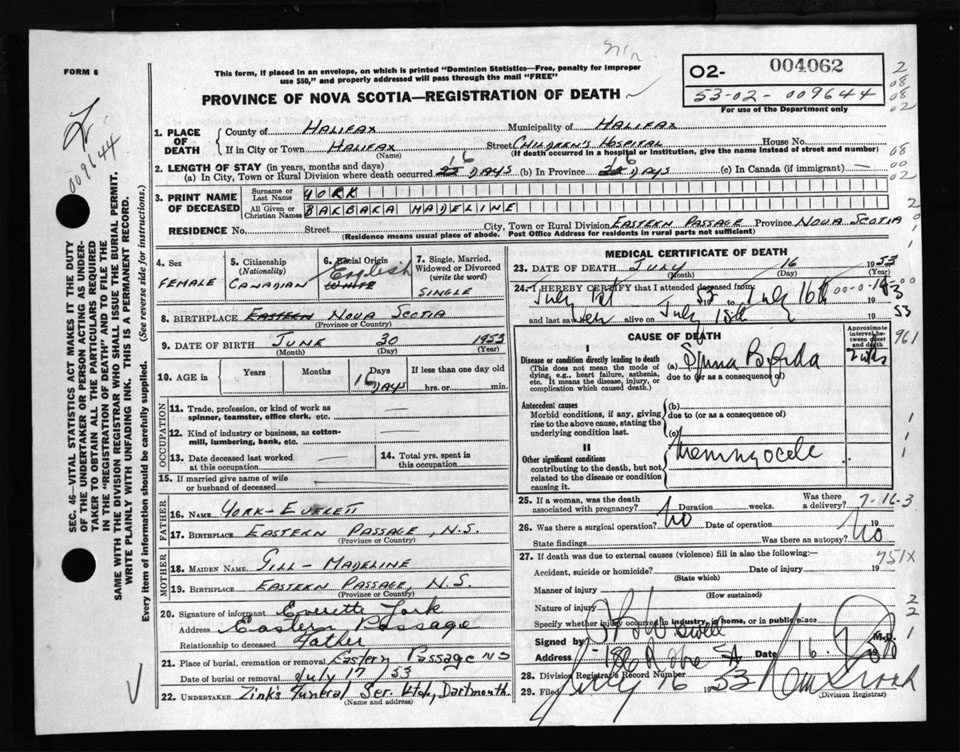 FORM 6
This form, if placed in an envelope, on which is printed "Dominion Statistics—Free, penalty for improper
use $50," and properly addressed will pass through the mail "FREE"
PROVINCE OF NOVA SCOTIA—REGISTRATION OF DEATH
O2- 004062
53-02-009644
For use of the Department only
009644
SEC. 46—VITAL STATISTICS ACT MAKES IT THE DUTY
OF THE UNDERTAKER OR PERSON ACTING AS UNDER-
TAKER TO OBTAIN ALL THE PARTICULARS REQUIRED
IN THE "REGISTRATION OF DEATH" AND TO FILE THE
SAME WITH THE DIVISION REGISTRAR WHO SHALL ISSUE THE BURIAL PERMIT.
WRITE PLAINLY WITH UNFADING INK. THIS IS A PERMANENT RECORD.
Every item of information should be carefully supplied. (See reverse side for instructions.)
1. PLACE OF DEATH
County of HALIFAX Municipality of HALIFAX
If in City or Town HALIFAX (Name) Street CHILDREN'S HOSPITAL House No.
(If death occurred in a hospital or institution, give the name instead of street and number)
2. LENGTH OF STAY (in years, months and days)
(a) In City, Town or Rural Division where death occurred 16 DAYS (b) In Province 16 DAYS (c) In Canada (if immigrant) —
3. PRINT NAME OF DECEASED
Surname or Last Name YORK
All Given or Christian Names BARBARA MADELINE
RESIDENCE No. Street City, Town or Rural Division EASTERN PASSAGE Province NOVA SCOTIA
(Residence means usual place of abode. Post Office Address for residents in rural parts not sufficient)
4. Sex FEMALE
5. Citizenship (Nationality) CANADIAN
6. Racial Origin English WHITE
7. Single, Married, Widowed or Divorced (write the word) SINGLE
8. BIRTHPLACE EASTERN NOVA SCOTIA
(Province or Country)
9. DATE OF BIRTH JUNE 30 1953
(Month) (Day) (Year)
10. AGE in Years Months Days 16 DAYS If less than one day old
hrs. or min.
OCCUPATION
11. Trade, profession, or kind of work as spinner, teamster, office clerk, etc. —
12. Kind of industry or business, as cotton-mill, lumbering, bank, etc. —
13. Date deceased last worked at this occupation —
14. Total yrs. spent in this occupation
15. If married give name of wife or husband of deceased —
FATHER
16. NAME YORK - EVERETT
17. BIRTHPLACE EASTERN PASSAGE, N.S.
(Province or Country)
MOTHER
18. MAIDEN NAME GILL - MADELINE
19. BIRTHPLACE EASTERN PASSAGE, N.S.
(Province or Country)
20. Signature of informant Everette York
Address Eastern Passage
Relationship to deceased Father
21. Place of burial, cremation or removal Eastern Passage NS
Date of burial or removal July 17/53
22. UNDERTAKER Zink's Funeral Ser. Dartmouth.
(Name and address)
MEDICAL CERTIFICATE OF DEATH
23. DATE OF DEATH JULY 16 1953
(Month) (Day) (Year)
24. I HEREBY CERTIFY that I attended deceased from:
July 1st 53 to July 16th
and last saw her alive on July 15th 53
CAUSE OF DEATH
Approximate interval between onset and death
I
Disease or condition directly leading to death
(This does not mean the mode of dying, e.g., heart failure, asthenia, etc. It means the disease, injury, or complication which caused death.)
(a) Spina Bifida 2 wks
due to (or as a consequence of)
Antecedent causes
Morbid conditions, if any, giving rise to the above cause, stating the underlying condition last.
(b)
due to (or as a consequence of)
(c)
II
Other significant conditions contributing to the death, but not related to the disease or condition causing it.
Meningocele
25. If a woman, was the death associated with pregnancy? Duration weeks. Was there a delivery? 7-16-3
26. Was there a surgical operation? No Date of operation 19
State findings Was there an autopsy? No
27. If death was due to external causes (violence) fill in also the following:—
751X
Accident, suicide or homicide? Date of injury 19
(State which)
Manner of injury
(How sustained)
Nature of injury
Specify whether injury occurred in industry, in home, or in public place
Signed by M.D.
Address Date 16
28. Division Registrar's Record Number
29. Filed July 16 1953
(Division Registrar)
961